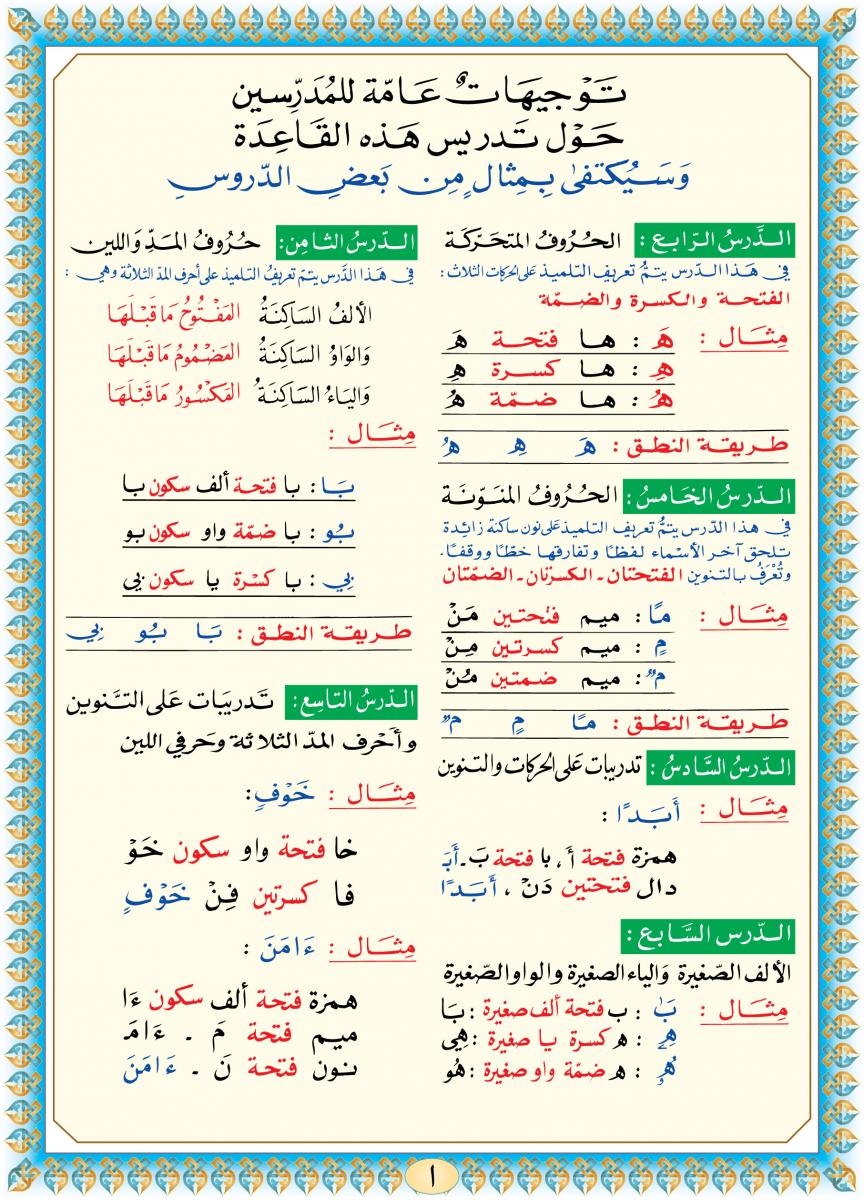 تَوْجيهَاتٌ عَامّة للمُدَرِّسين
حَوْل تَدريس هَذه القَاعِدَة
وَسَيُكتفىٰ بِمِثالٍ مِن بَعضِ الدّروسِ
الدَّرسُ الرّابع : الحُرُوفُ المتحَرّكَة
في هَذا الدّرس يتمُّ تعريف التلميذ عَلى الحركات الثلاث :
الفتحة والكسرة والضمّة
مِثال : هَ : هـا فتحة هَ
هِ : هـا كسرة هِ
هُ : هـا ضمّة هُ
طريقة النطق : هَ هِ هُ
الدّرسُ الخَامسُ : الحُرُوفُ المنَوّنَة
في هذا الدّرس يتمُّ تعريف التلميذ عَلى نون ساكنة زائدة
تلحق آخر الأسْماء لفظًا وتفارقها خطًا ووقفًا .
وتُعْرَفُ بالتنوين الفتحتان ـ الكسرتان ـ الضمّتان
مِثال : مًا : ميم فتحتين مَنْ
مٍ : ميم كسرتين مِنْ
مٌ : ميم ضمتين مُنْ
طريقة النطق : مًا مٍ مٌ
الدّرسُ السّادسُ : تدريبات عَلى الحركات والتنوين
مِثال : أَبَدًا :
همزة فتحة أَ ، با فتحة بَ ـ أَبَ
دال فتحتين دَنْ ، أَبَدًا
الدّرس السَّابع :
الألف الصّغيرة والياء الصغيرة والواو الصّغيرة
مِثال : بَٰ : ب فتحة ألف صغيرة : بَا
هِۦ : ه كسرة يا صغيرة : هِى
هُۥ : ه ضمّة واو صغيرة : هُو
الدّرسُ الثامن : حُرُوفُ المَدّ وَاللين
في هَذا الدَّرس يتمّ تعريفُ التلميذ على أحرف المدّ الثلاثة وهي :
الألفُ السَاكِنَةُ المَفْتُوحُ مَا قَبْلَهَا
وَالوَاوُ السَاكِنَةُ المَضْمُومُ مَا قَبْلَهَا
وَاليَاءُ السَاكِنَةُ المَكْسُورُ مَا قَبْلَهَا
مِثال :
بَا : با فتحة ألف سكون با
بُو : با ضمّة واو سكون بو
بِي : با كسرة يا سكون بى
طريقة النطق : بَا بُو بِي
الدّرسُ التاسِع : تَدريبَات عَلى التَّنوين
وأحْرف المدّ الثلاثة وحَرفي اللين
مِثال : خَوْفٍ :
خا فتحة واو سكون خَوْ
فا كسرتين فِنْ خَوْفٍ
مِثال : ءَامَنَ :
همزة فتحة ألف سكون ءَا
ميم فتحة مَ ـ ءَامَ
نون فتحة نَ ـ ءَامَنَ
١